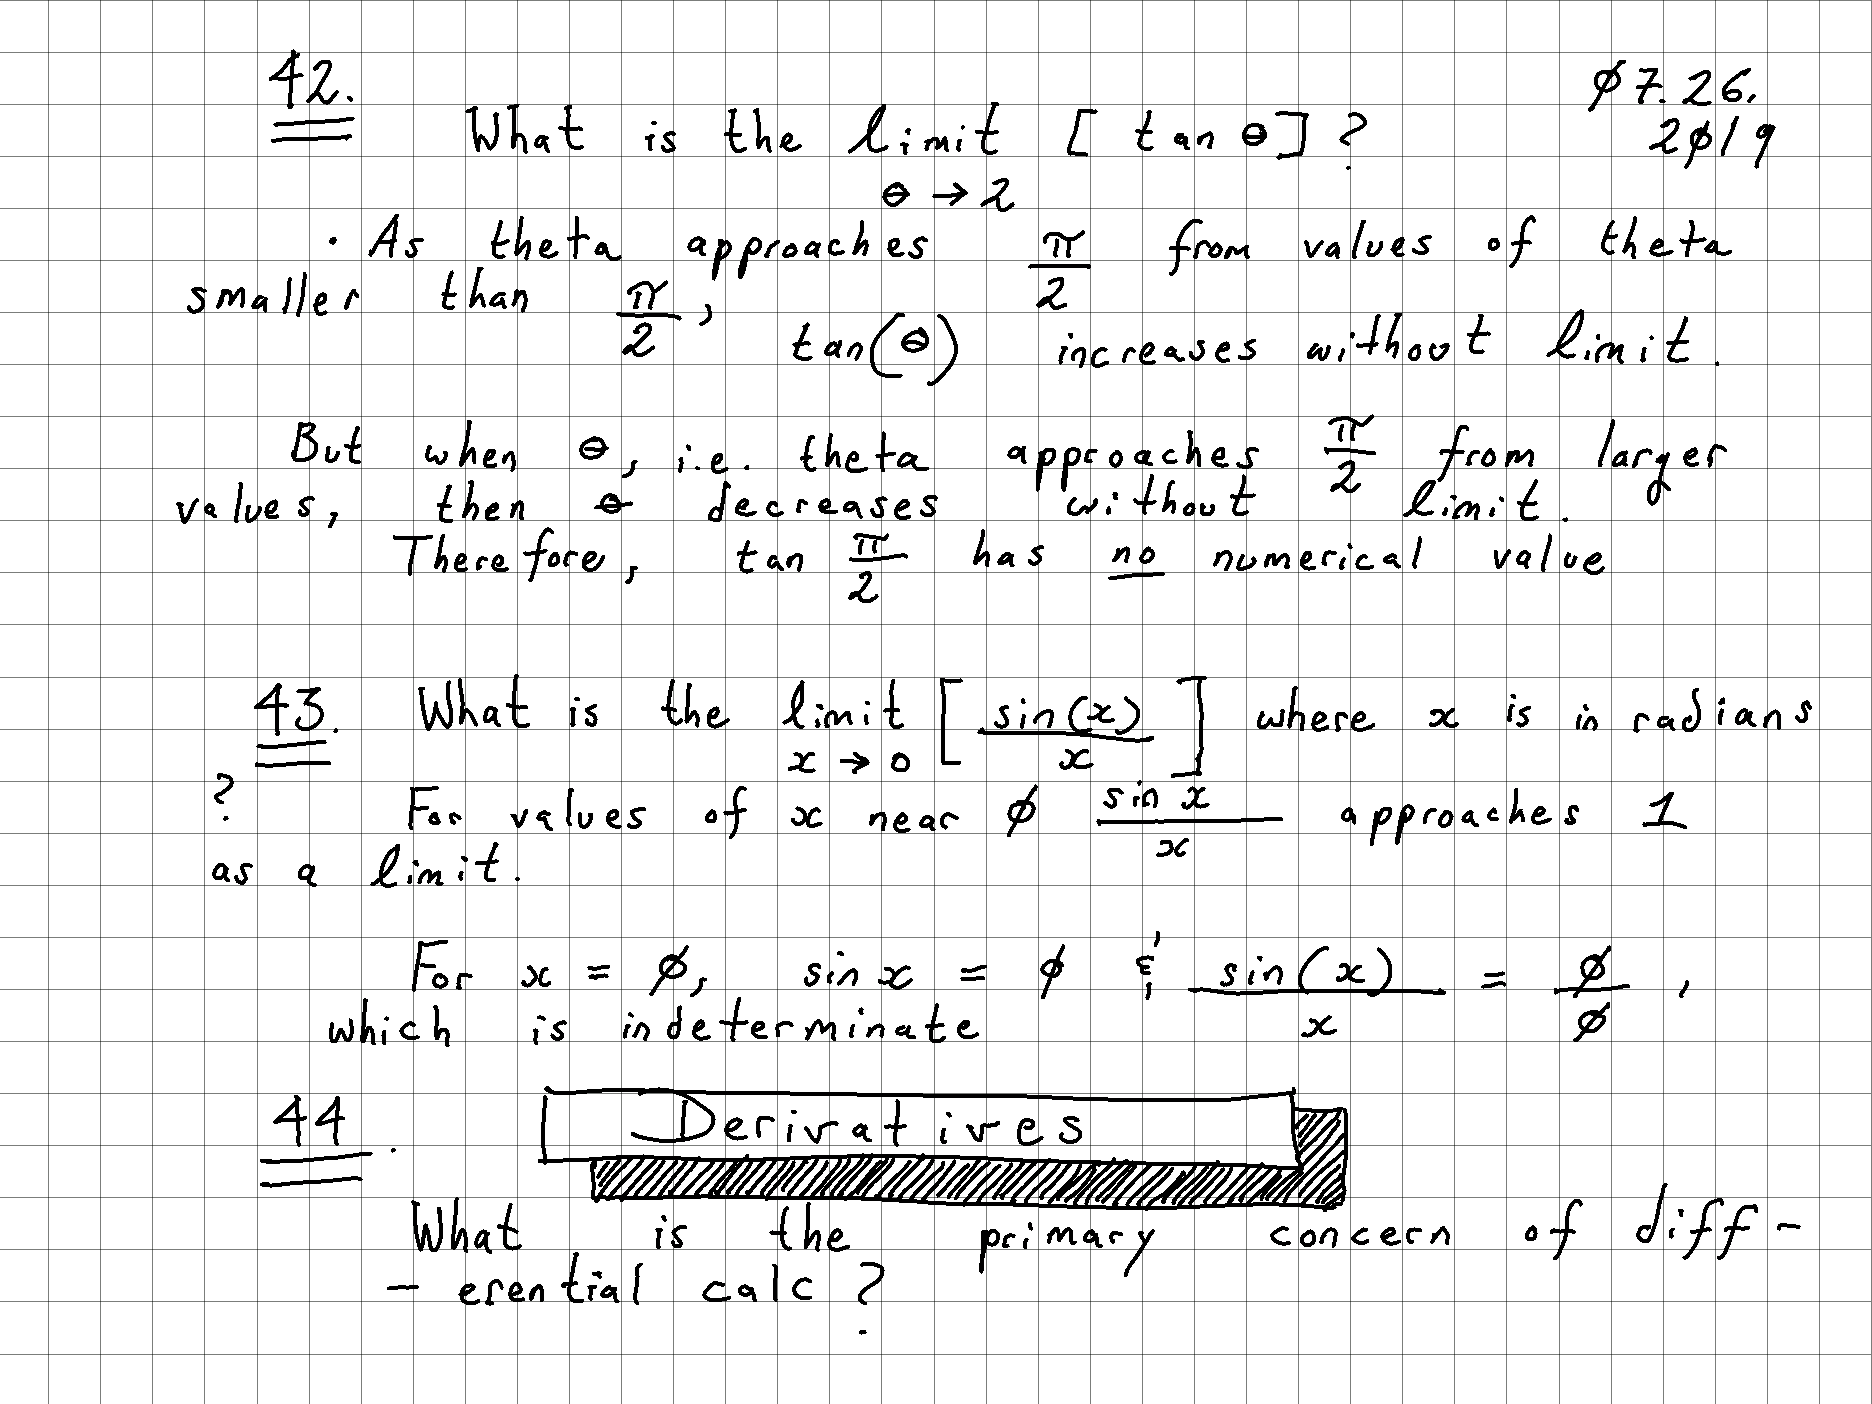 42.
ø7.26.
2ø19
What is the limit [ tan θ ] ?
θ → 2
· As theta approaches π/2 from values of theta
smaller than π/2, tan(θ) increases without limit.
But when θ, i.e. theta approaches π/2 from larger
values, then θ decreases without limit.
Therefore, tan π/2 has no numerical value
43. What is the limit [ sin(x)/x ] where x is in radians
x → 0
? For values of x near ø sin x/x approaches 1
as a limit.
For x = ø, sin x = ø & sin(x)/x = ø/ø ,
which is indeterminate
44. Derivatives
What is the primary concern of diff-
- erential calc ?